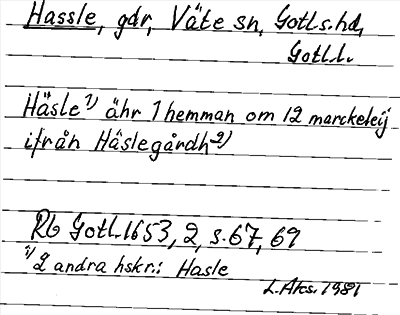 Hassle, gdr, Väte sn, Gotl.s.hd,
Gotl.l.
Häsle 1) ähr 1 hemman om 12 marckeleij
ifrån Häslegårdh 2)
Rb Gotl. 1653, 2, s. 67, 69
1) 2 andra hskr.: Hasle
L.Aks. 1981